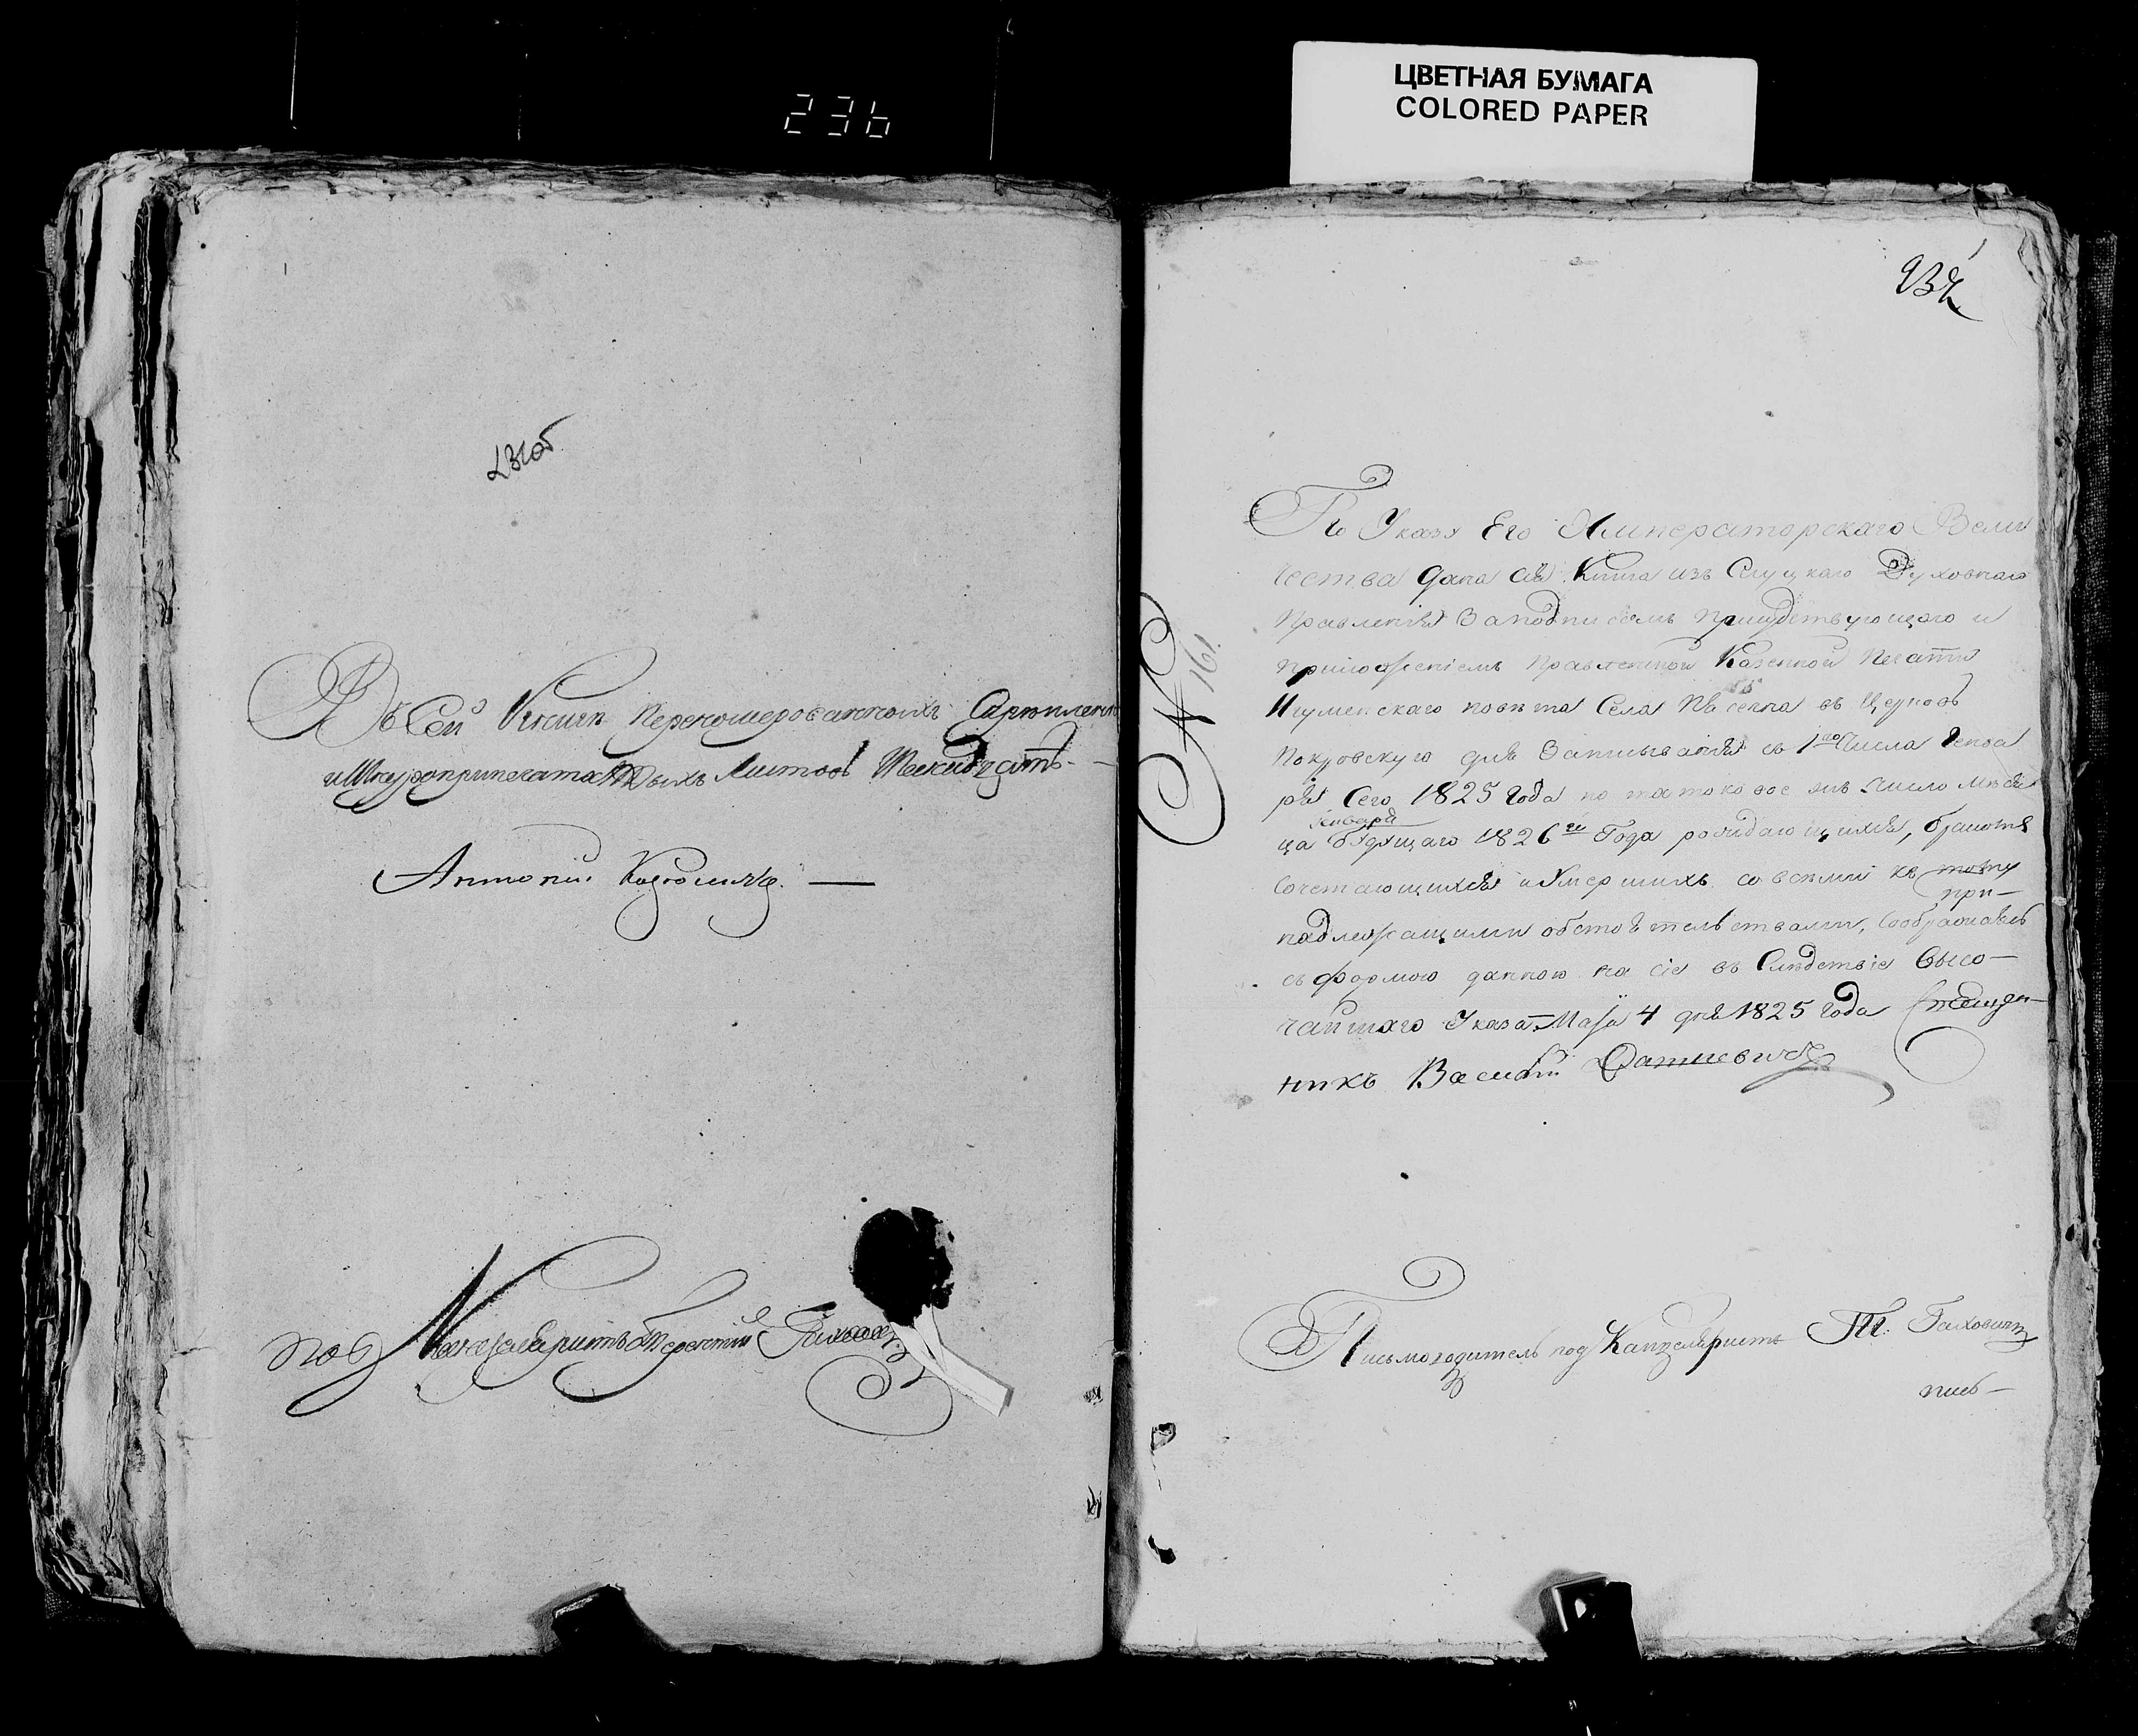 236
ЦВЕТНАЯ БУМАГА
COLORED PAPER
Въ сей Книги перенумерованныхъ Скрѣпленн
и Шнуропринечатанныхъ Листовъ
Антоній
подканцеляристъ Терентій
№ 161
По Указу Его Императорскаго Вели
чества дана сія Книга изъ Слуцкаго Духовнаго
Правленія Заподписомъ присудствующаго и
приложеніемъ правленной Казенной печати
Игуменскаго повѣта Села въ Церковь
Покровскую для Записыванія съ 1го Числа Генва
ря Сего 1825 Года по таковое жъ число мѣся
Генваря
ца будущаго 1826го Года рождающихся, бракомъ
сочетающихся и Умершихъ со всеми къ тому
при-
надлежащими обстоятельствами, сообразжаясь
съ формою данною на сіе въ Слѣдствіе Высо-
чайшаго Указа Маія 4 дня 1825 Года
никъ Василій
Письмоводитель подканцеляристъ Т. Гахович